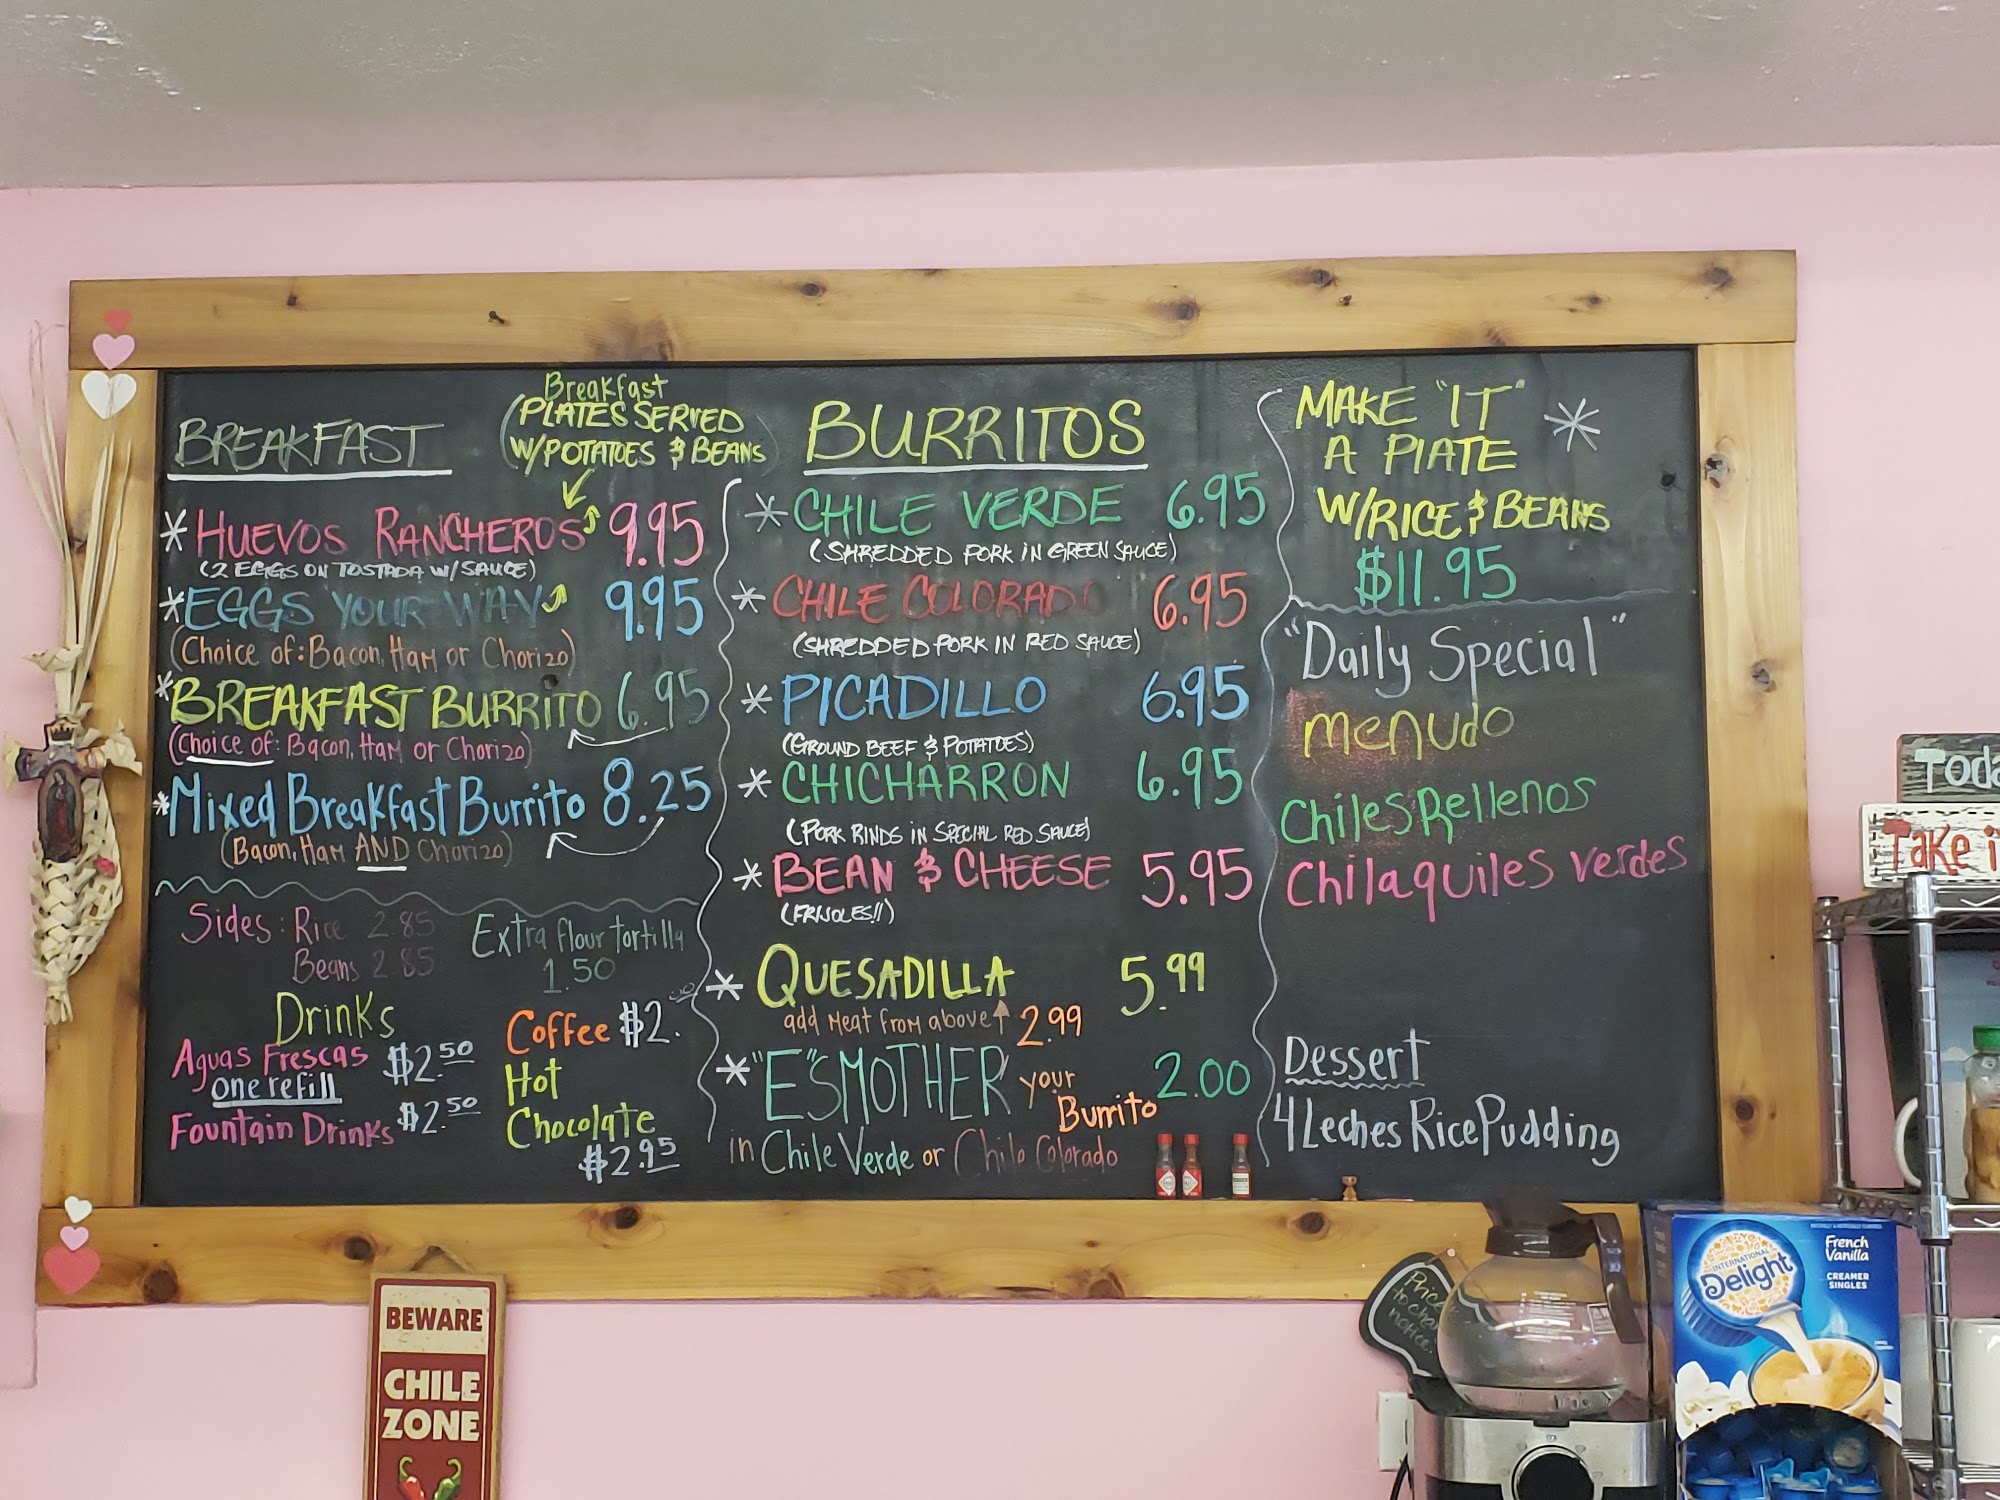 BREAKFAST
Breakfast
(PLATES SERVED
W/POTATOES & BEANS)
*HUEVOS RANCHEROS 9.95
(2 EGGS ON TOSTADA W/SAUCE)
*EGGS YOUR WAY 9.95
(Choice of: Bacon, Ham or Chorizo)
*BREAKFAST BURRITO 6.95
(Choice of: Bacon, Ham or Chorizo)
*Mixed Breakfast Burrito 8.25
(Bacon, Ham AND Chorizo)
Sides: Rice 2.85
Beans 2.85
Extra flour tortilla
1.50
Drinks
Aguas Frescas $2.50
one refill
Fountain Drinks $2.50
Coffee $2.00
Hot
Chocolate
$2.95
BURRITOS
*CHILE VERDE 6.95
(SHREDDED PORK IN GREEN SAUCE)
*CHILE COLORADO 6.95
(SHREDDED PORK IN RED SAUCE)
*PICADILLO 6.95
(GROUND BEEF & POTATOES)
*CHICHARRON 6.95
(PORK RINDS IN SPECIAL RED SAUCE)
*BEAN & CHEESE 5.95
(FRIJOLES!!)
*QUESADILLA 5.99
add meat from above↑ 2.99
*"E"SMOTHER your Burrito 2.00
in Chile Verde or Chile Colorado
MAKE "IT" *
A PLATE
W/RICE & BEANS
$11.95
"Daily Special"
menudo
Chiles Rellenos
Chilaquiles verdes
Dessert
4 Leches Rice Pudding
BEWARE
CHILE
ZONE
Take i
INTERNATIONAL
Delight
French
Vanilla
CREAMER
SINGLES
notice.